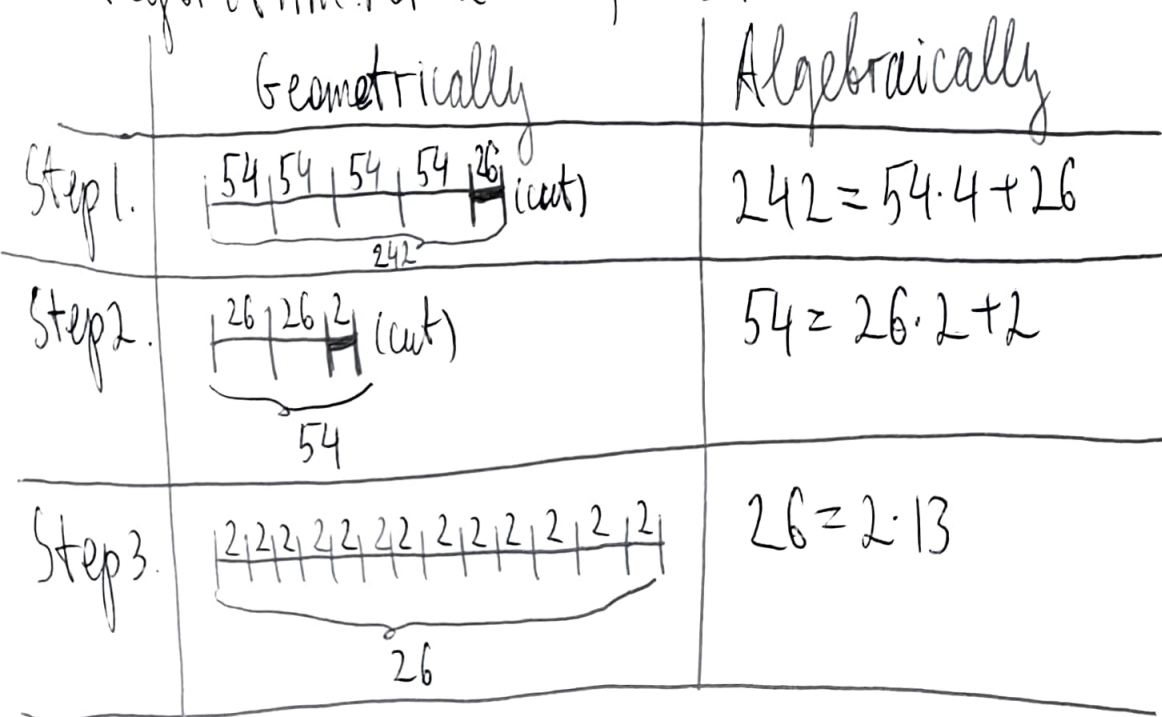 Geometrically Algebraically
Step 1. 54 54 54 54 26 (cut) 242 = 54·4+26
242
Step 2. 26 26 2 (cut) 54 = 26·2+2
54
Step 3. 2 2 2 2 2 2 2 2 2 2 2 2 2 26 = 2·13
26